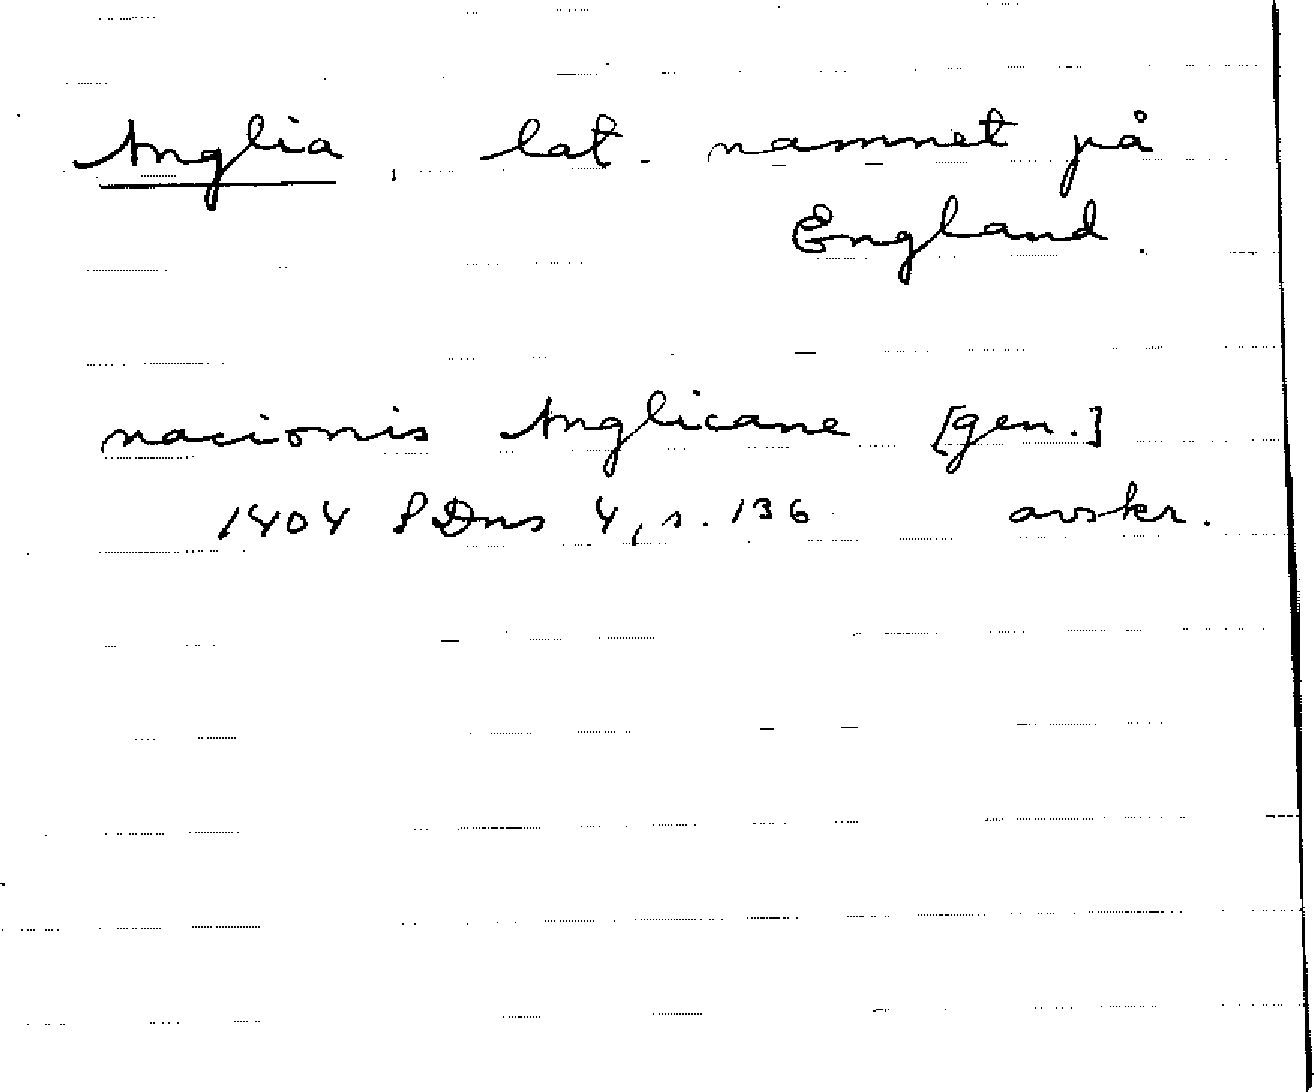 Anglia, lat. namnet på
England.
nacionis Anglicane [gen.]
1404 SDns 4, s. 136 avskr.